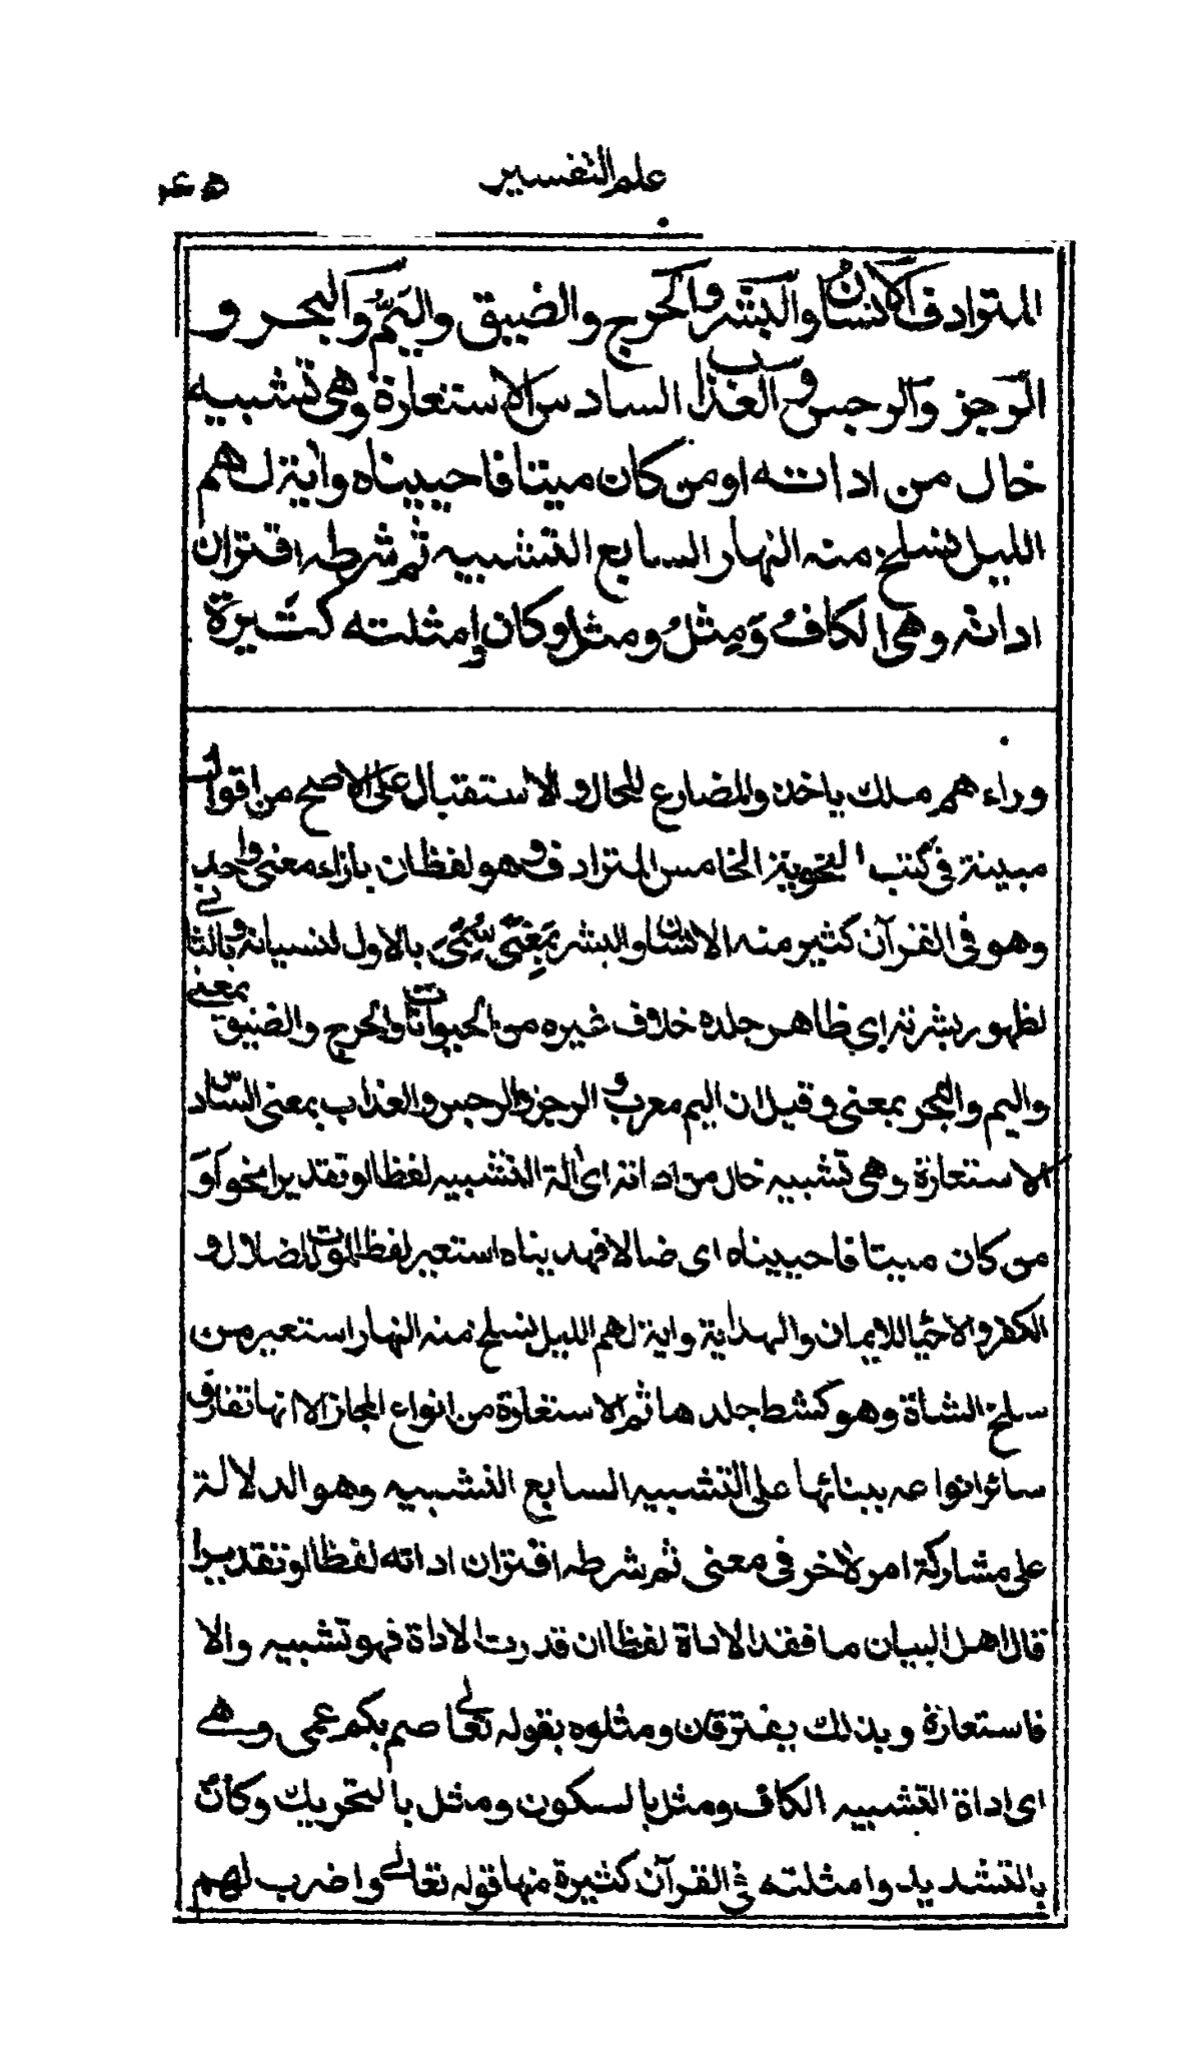 علم التفسير ٤٥
المترادف كالانسان والبشر والحرج والضيق واليَمّ والبحر و
الرجز والرجس والعذاب السادس الاستعارة وهي تشبيه
خال من اداته او من كان ميتا فاحييناه واية لهم
الليل نسلخ منه النهار السابع التشبيه ثم شرطه اقتران
اداته وهي الكافُ وَمِثْلُ ومثل وكان وامثلته كثيرة
وراءهم ملك ياخذ والمضارع للحال والاستقبال على الاصح من اقوال
مبينة في كتب النحوية الخامس المترادف وهو لفظان بازاء معنى واحد
وهو في القرآن كثير منه الانسان والبشر بمعنى سُمّيَ بالاول لنسيانه وبالثاني
لظهور بشرته اي ظاهر جلده خلاف غيره من الحيوانات والحرج والضيق بمعنى
واليم والبحر بمعنى وقيل ان اليم معرب والرجز والرجس والعذاب بمعنى السّادس
الاستعارة وهي تشبيه خال من اداته اى الة التشبيه لفظا او تقديرا نحو اَوَ
من كان ميتا فاحييناه اى ضالا فهديناه استعير لفظ الموت للضلال و
الكفر والاحياء للايمان والهداية واية لهم الليل نسلخ منه النهار استعير من
سلخ الشاة وهو كشط جلدها ثم الاستعارة من انواع المجاز الا انها تفارق
سائر انواعه ببنائها على التشبيه السابع التشبيه وهو الدلالة
على مشاركة امر لاخر في معنى ثم شرطه اقتران اداته لفظا او تقديرا
قال اهل البيان ما فقد الاداة لفظا ان قدرت الاداة فهو تشبيه والا
فاستعارة وبذلك يفترقان ومثلوه بقوله تعالى صم بكم عمى وهي
اى اداة التشبيه الكاف ومثل بالسكون ومثل بالتحريك وكأنّ
بالتشديد وامثلته في القرآن كثيرة منها قوله تعالى واضرب لهم